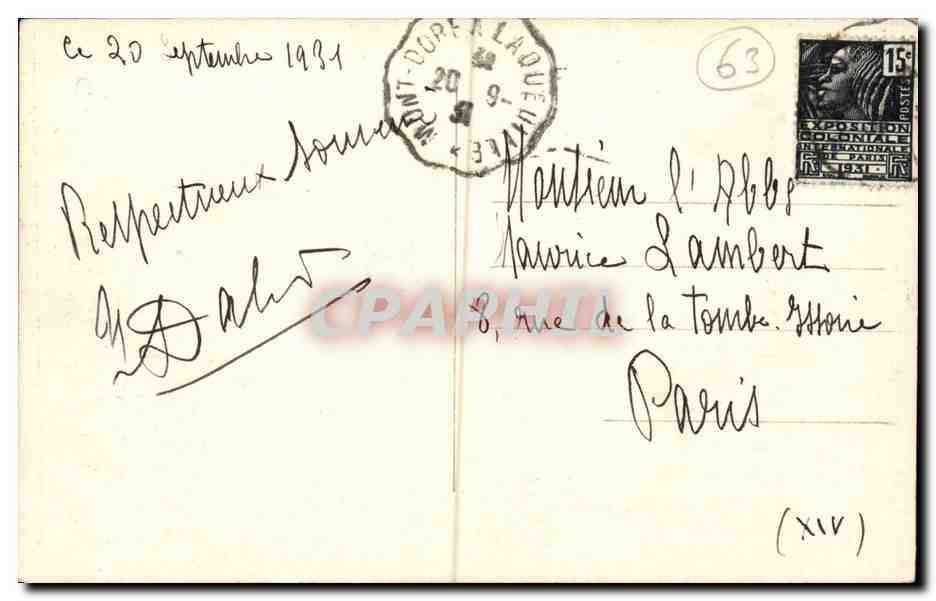 Ce 20 Septembre 1931
MONT-DORE A LAQUEUILLE
20-9-
31
63
15c
POSTES
EXPOSITION
COLONIALE
INTERNATIONALE
PARIS
RF 1931 RF
Respectueux Souvenir
Monsieur l'Abbé
Maurice Lambert
8, rue de la Tombe-Issoire
Paris
(XIV)
CPAPHIL